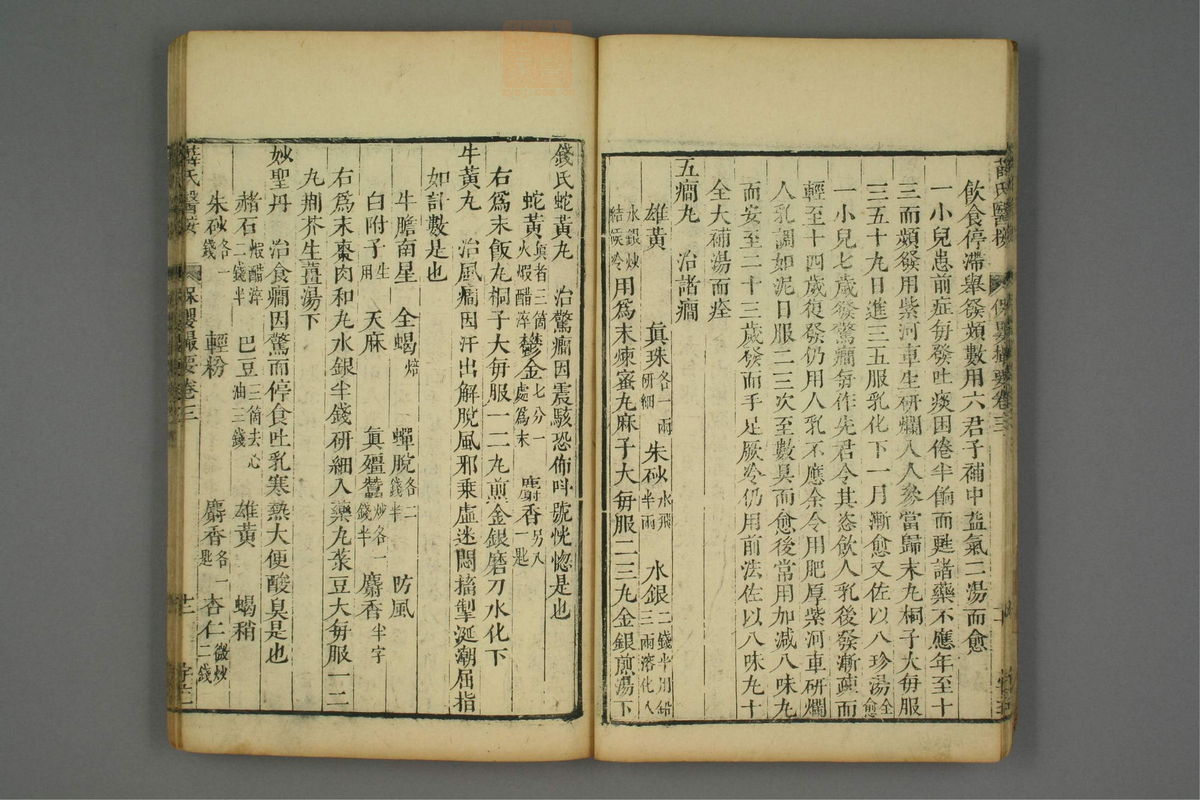 飲食停滯舉發頻數用六君子補中益氣二湯而愈
一小兒患前症每發吐痰困倦半餉而甦諸藥不應年至十
三而頻發用紫河車生研爛人人參當歸末丸桐子大每服
三五十丸日進三五服乳化下一月漸愈又佐以八珍湯全愈
一小兒七歲發驚癇每作先君令其恣飲人乳後發漸疎而
輕至十四歲復發仍用人乳不應余令用肥厚紫河車研爛
人乳調如泥日服二三次至數具而愈後常用加減八味丸
而安至二十三歲發而手足厥冷仍用前法佐以八味丸十
全大補湯而痊
五癇丸 治諸癇
雄黃 眞珠各一兩研細 朱砂水飛半兩 水銀二錢半用鉛三兩溶化入
水銀炒結候冷用爲末煉蜜丸麻子大每服二三丸金銀煎湯下
錢氏蛇黃丸 治驚癇因震駭恐怖呌號恍惚是也
蛇黃眞者三箇火煆醋淬 鬱金七分一處爲末 麝香另入一匙
右爲末飯丸桐子大每服一二丸煎金銀磨刀水化下
牛黃丸 治風癇因汗出解脫風邪乗虛迷悶搐掣涎潮屈指
如計數是也
牛膽南星 全蝎焙 蟬脫各二錢半 防風
白附子生用 天麻 眞殭蠶炒各一錢半 麝香半字
右爲末棗肉和丸水銀半錢研細入藥丸菉豆大每服一二
丸荆芥生薑湯下
妙聖丹 治食癇因驚而停食吐乳寒熱大便酸臭是也
赭石煆醋淬二錢半 巴豆三箇去心油三錢 雄黃 蝎稍
朱砂各一錢 輕粉 麝香各一匙 杏仁微炒二錢
薛氏醫按 保嬰撮要卷三